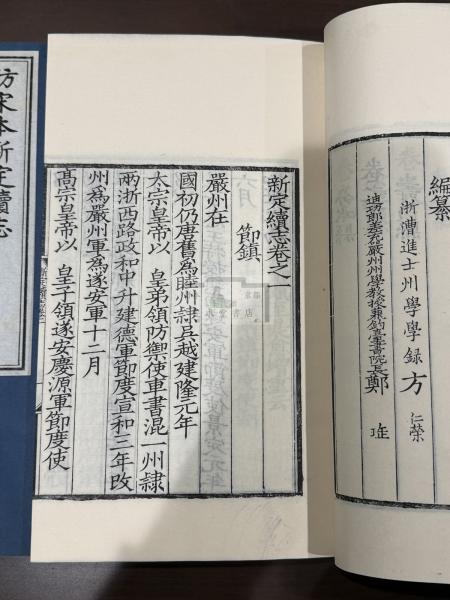 編纂
浙漕進士州學學録方 仁榮
迪功郎差充嚴州州學教授兼釣臺書院長鄭
新定續志卷之一
節鎮
嚴州在
國初仍唐舊為睦州隸吳越建隆元年
太宗皇帝以 皇弟領防禦使車書混一州隸
兩浙西路政和中升建德軍節度宣和三年改
州為嚴州軍為遂安軍十二月
髙宗皇帝以 皇子領遂安慶源軍節度使
仿宋本新定續志